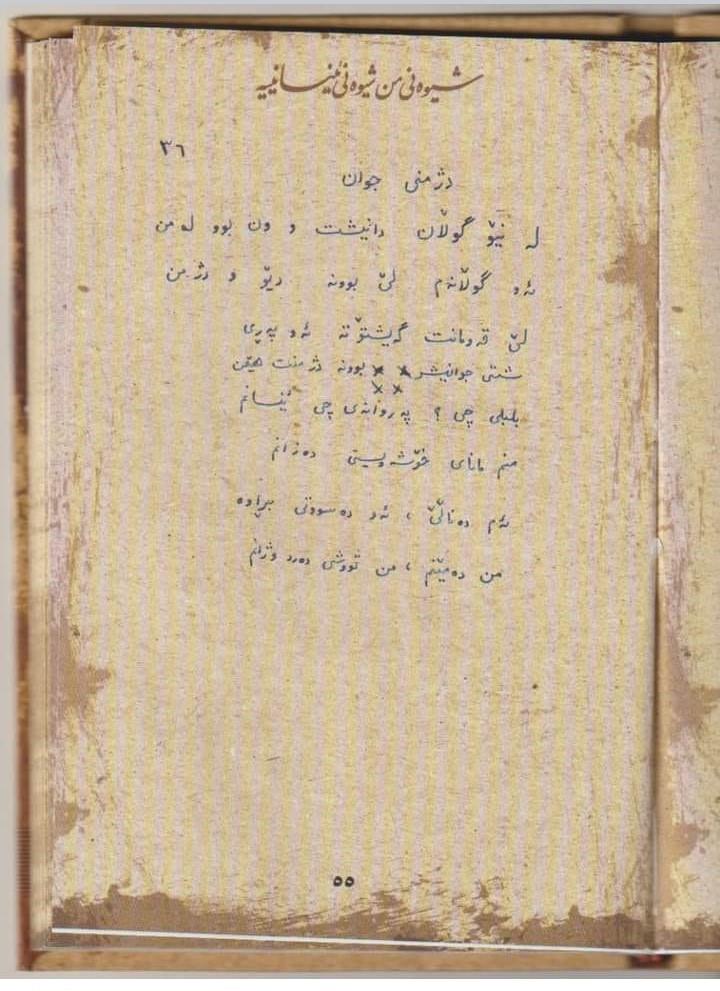 شیوەنی من شیوەنی ئینسانییە
٣٦
دژمنی جوان
لە نێو گوڵان دانیشت و ون بوو لەمن
ئەو گوڵانەم لێ بوونە دێو و دژمن
لێ قەومانت گەیشتۆتە ئەو پەڕی
شتی جوانیشر × × بوونە دژمنت هێمن
× ×
بلبلی چی ؟ پەروانەی چی ئینسانم
منم مانای خۆشەویستی دەزانم
ئەم دەناڵێ ، ئەو دەسووتێ بڕاوە
من دەمێنم ، من تووشی دەرد وژانم
٥٥